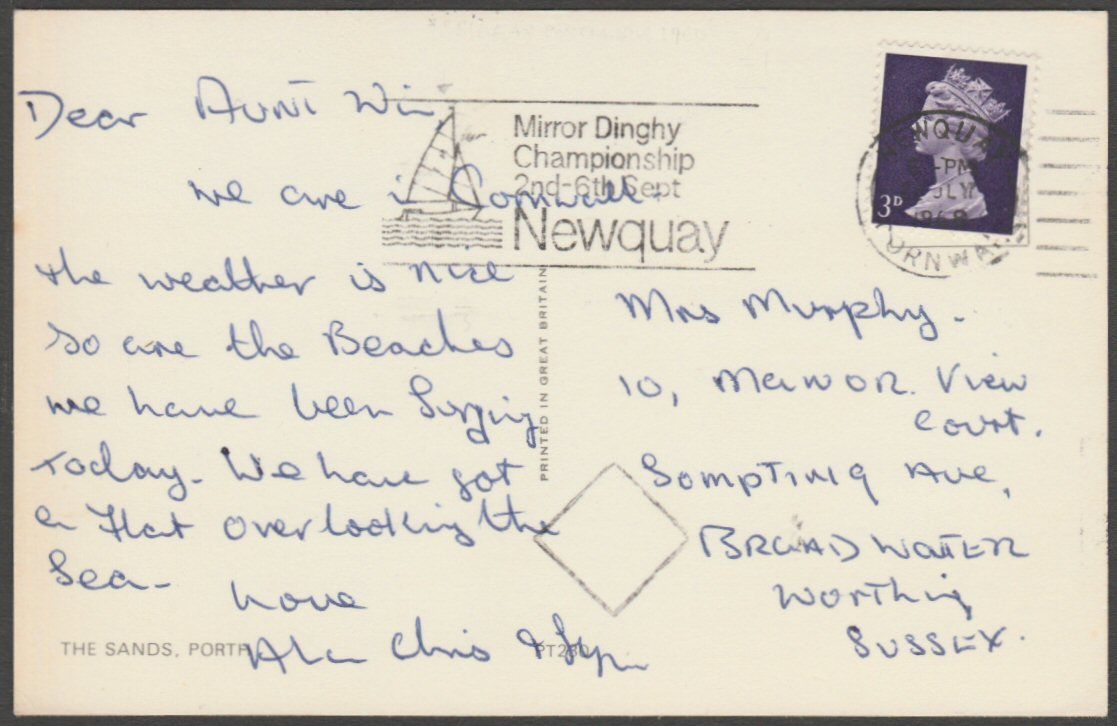 Dear Aunt Win,
we are in Cornwall.
the weather is nice
so are the Beaches
we have been
Today. We have got
a Flat overlooking the
Sea.
Love
Alan Chris & Lyn
Mirror Dinghy
Championship
2nd-6th Sept
Newquay
3D
NEWQUAY
-PM
JULY
1968
CORNWALL
PRINTED IN GREAT BRITAIN
Mrs Murphy.
10, Manor View
Court.
Sompting Ave,
BROADWATER
Worthing
SUSSEX.
THE SANDS, PORTH
PT230